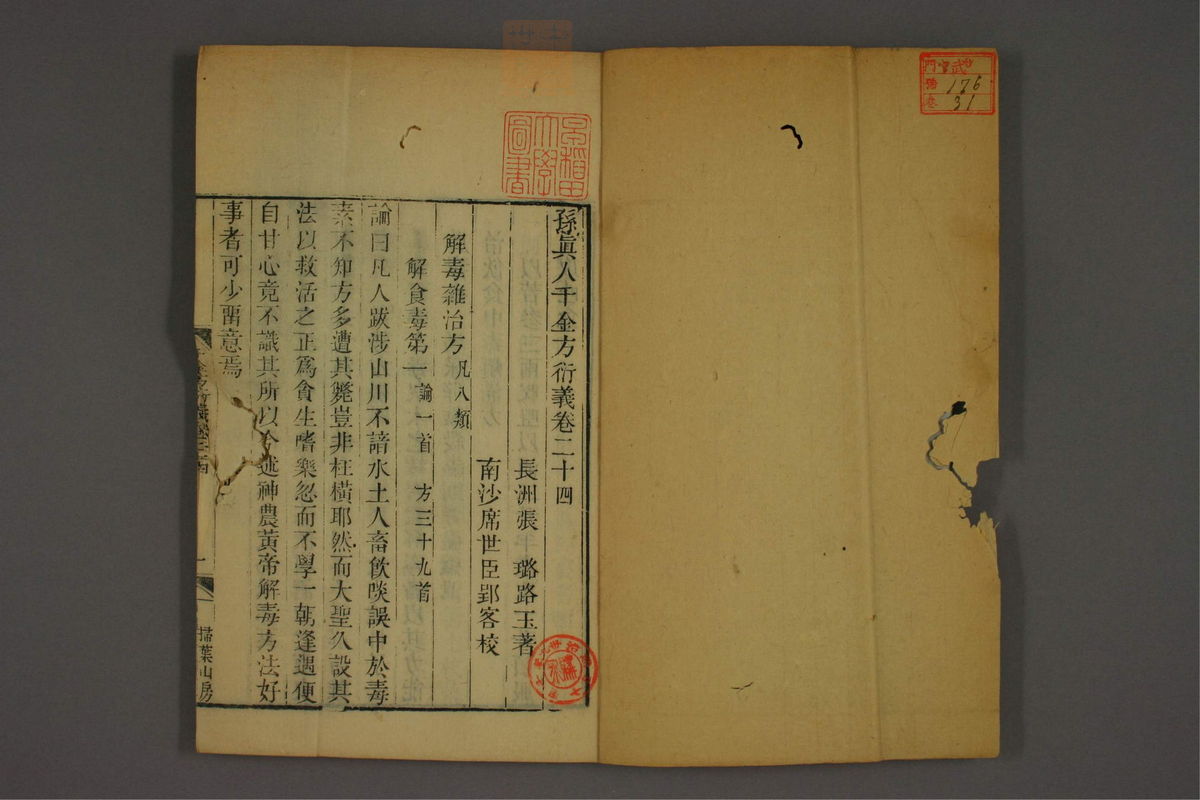 孫眞人千金方衍義卷二十四
長洲張璐路玉著
南沙席世臣郢客校
解毒雜治方凡八類
解食毒第一論一首 方三十九首
論曰凡人跋涉山川不諳水土人畜飮啖誤中於毒
素不知方多遭其斃豈非枉橫耶然而大聖久設其
法以救活之正爲貪生嗜樂忽而不學一朝逢遇便
自甘心竟不識其所以今述神農黃帝解毒方法好
事者可少畱意焉
掃葉山房
早稻田大學圖書
176
31